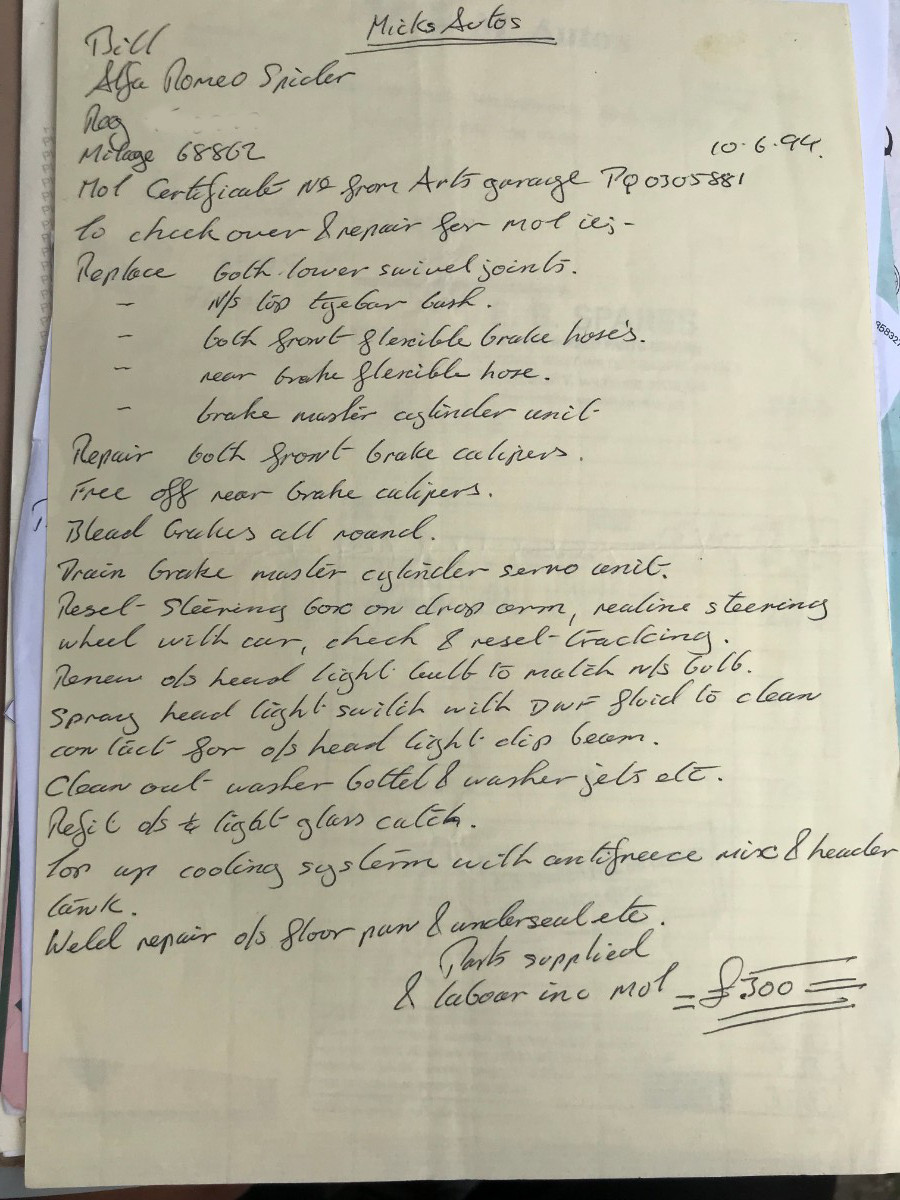 Micks Autos
Bill
Alfa Romeo Spider
Reg
Milage 68862
10.6.94.
Mot Certificate No from Arts garage PQ0305881
to check over & repair for mot ie;-
Replace both lower swivel joints.
- N/s top tyebar bush.
- both front flexible brake hose's.
- rear brake flexible hose.
- brake master cylinder unit
Repair both front brake calipers.
Free off rear brake calipers.
Blead brakes all round.
Drain brake master cylinder servo unit.
Reset steering box on drop arm, realine steering
wheel with car, check & reset tracking.
Renew o/s head light bulb to match N/s bulb.
Spray head light switch with DWF fluid to clean
contact for o/s head light dip beam.
Clean out washer bottel & washer jets etc.
Refit o/s light glass catch.
Top up cooling systerm with antifreece mix & header
tank.
Weld repair o/s floor pan & underseal etc.
Parts supplied
& labour inc mot = £300 =
858327